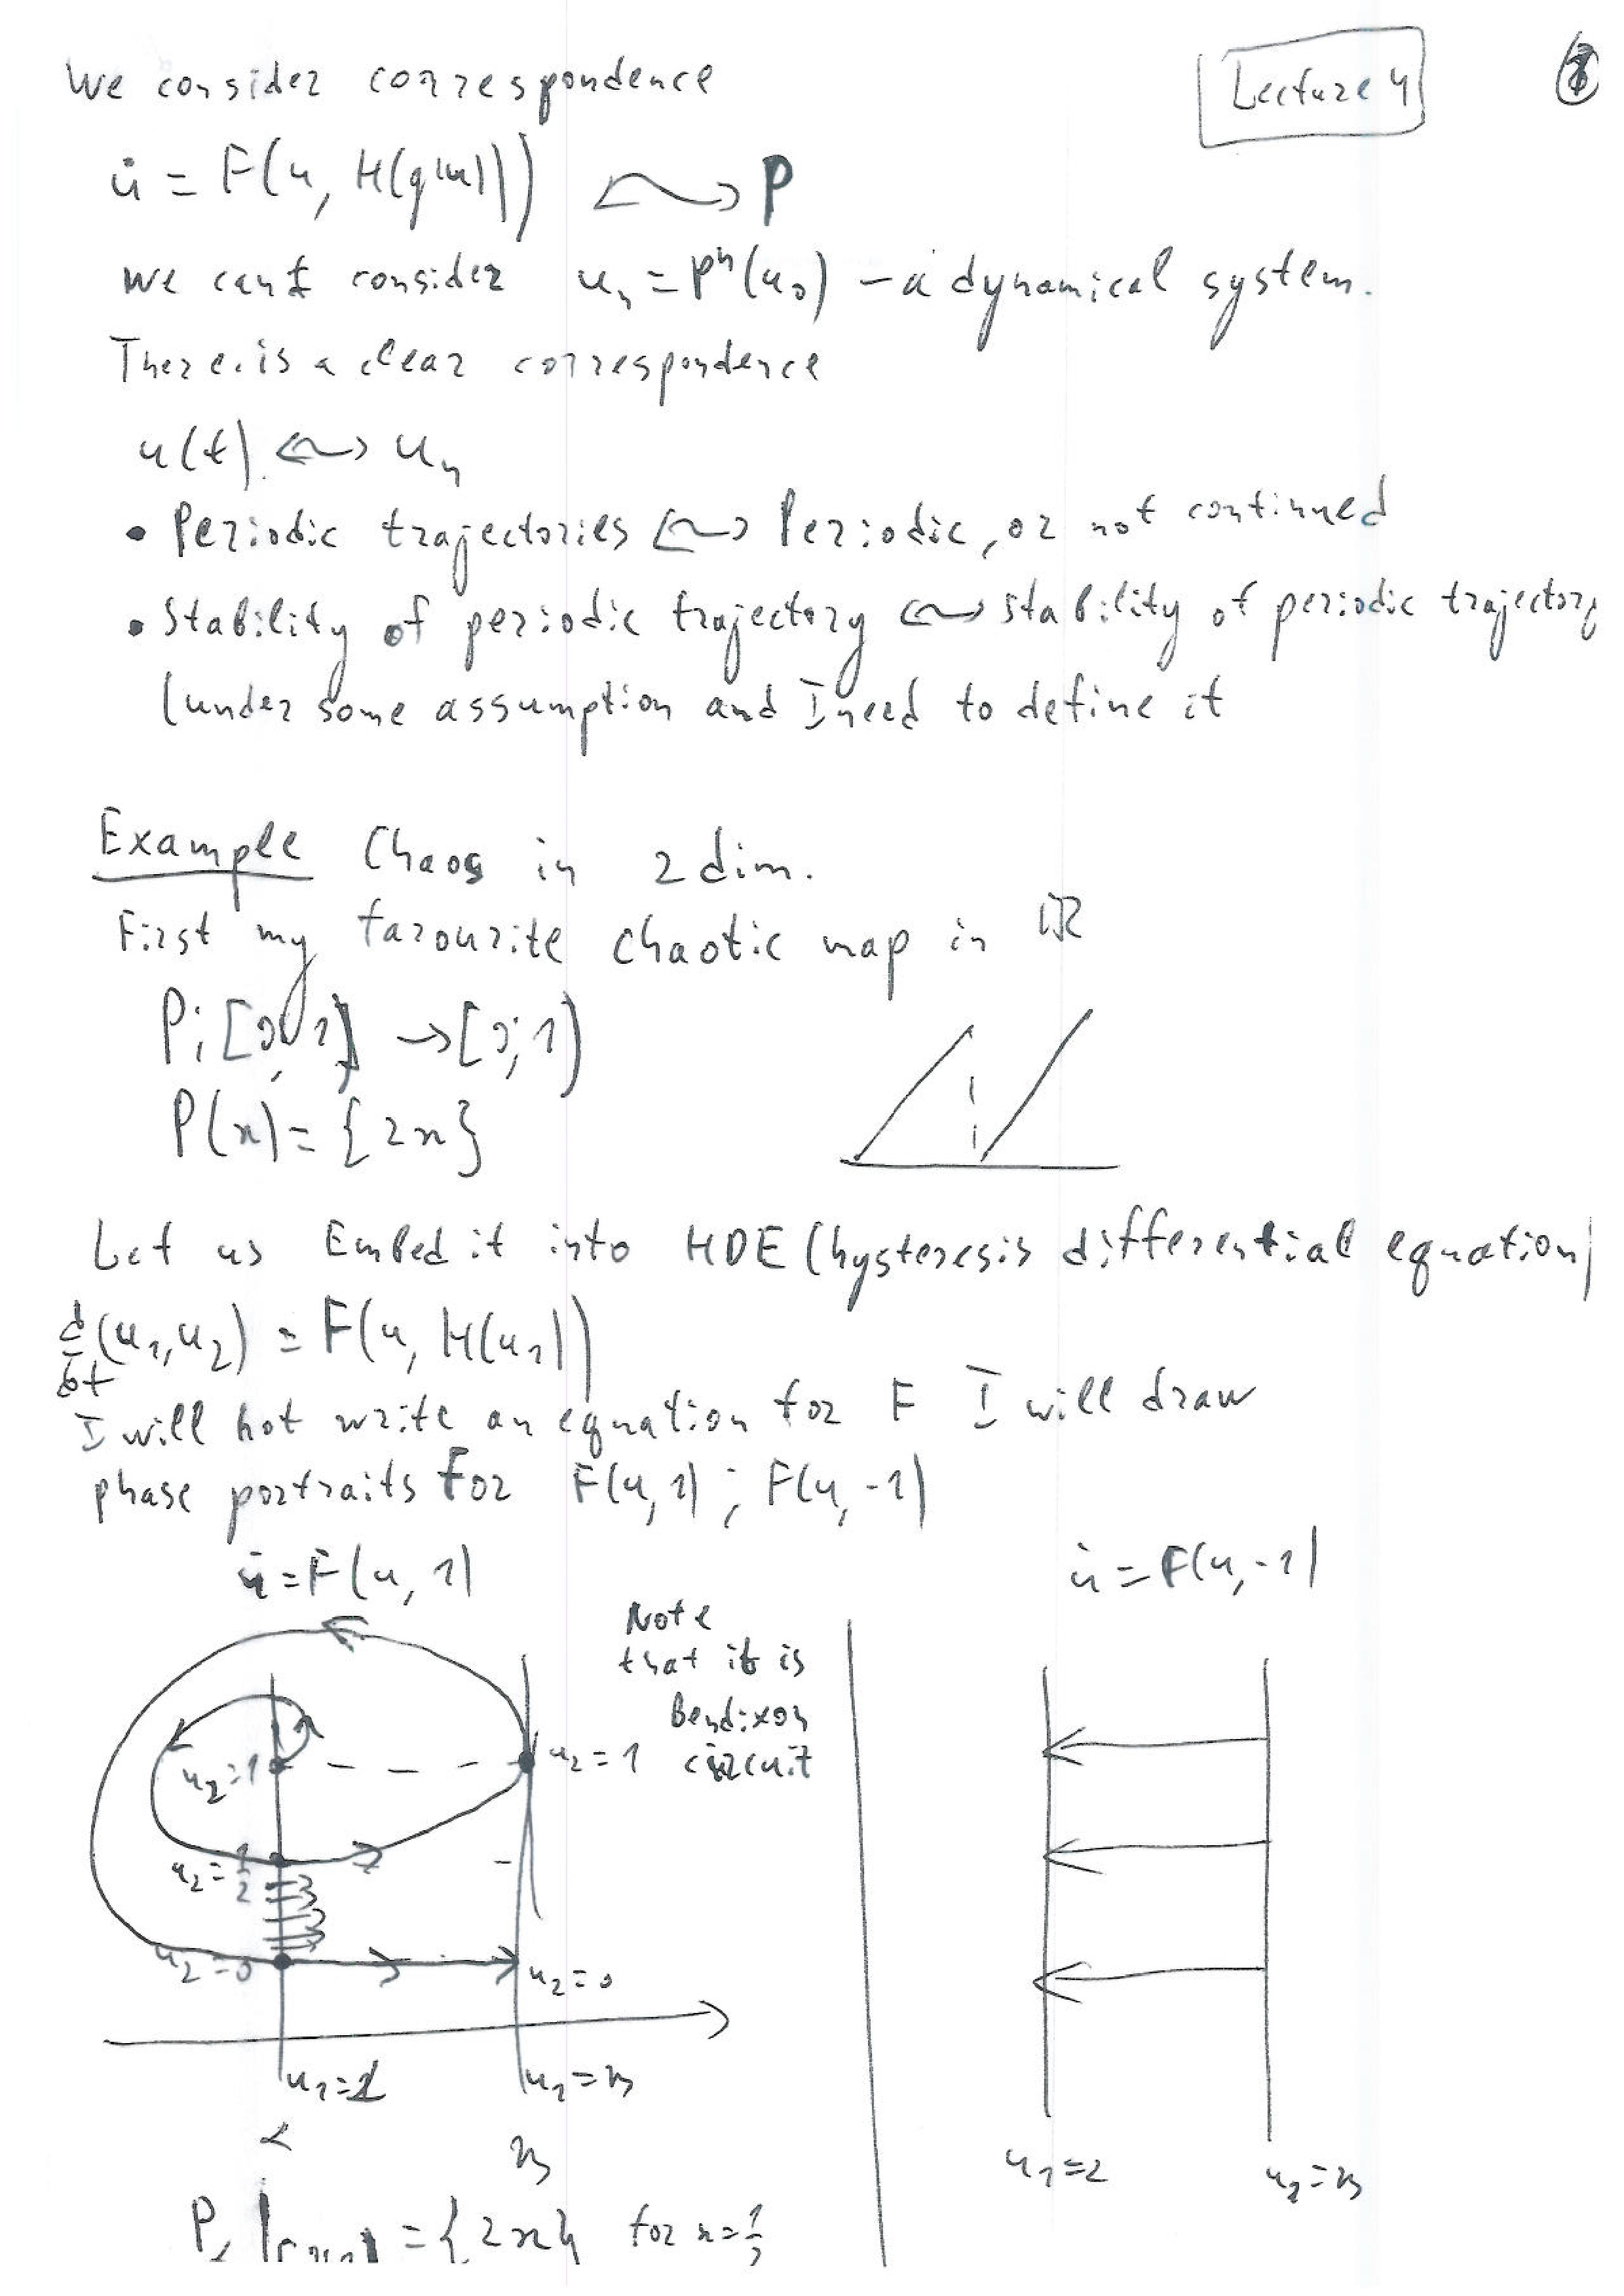 We consider correspondence
Lecture 4
u̇ = F(u, H(g(u))) ↔ P
We can consider u_n = P^n(u_0) – a dynamical system.
There is a clear correspondence
u(t) ↔ u_n
• Periodic trajectories ↔ Periodic, or not continued
• Stability of periodic trajectory ↔ stability of periodic trajectory
(under some assumption and I need to define it
Example Chaos in 2 dim.
First my favourite chaotic map in ℝ
P: [0, 1) → [0; 1)
P(x) = {2x}
Let us Embed it into HDE (hysteresis differential equation)
d/dt (u_1, u_2) = F(u, H(u_1))
I will not write an equation for F I will draw
phase portraits for F(u, 1); F(u, -1)
u̇ = F(u, 1)
u̇ = F(u, -1)
Note
that it is
Bendixon
circuit
u_2 = 1
u_2 = 1
u_2 = 1/2
u_2 = 0
u_2 = 0
u_1 = α
u_1 = β
α
β
u_1 = α
u_1 = β
= {2x} for x =